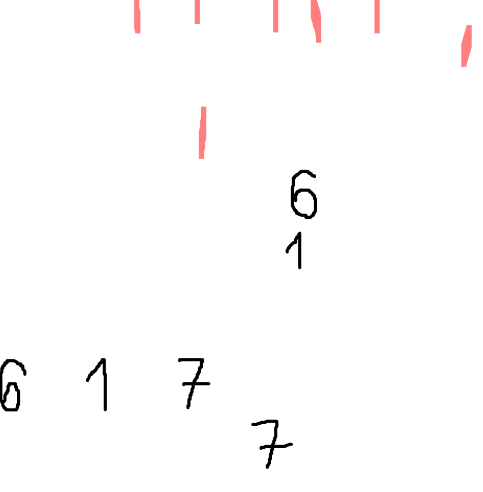 6
1
6 1 7
7